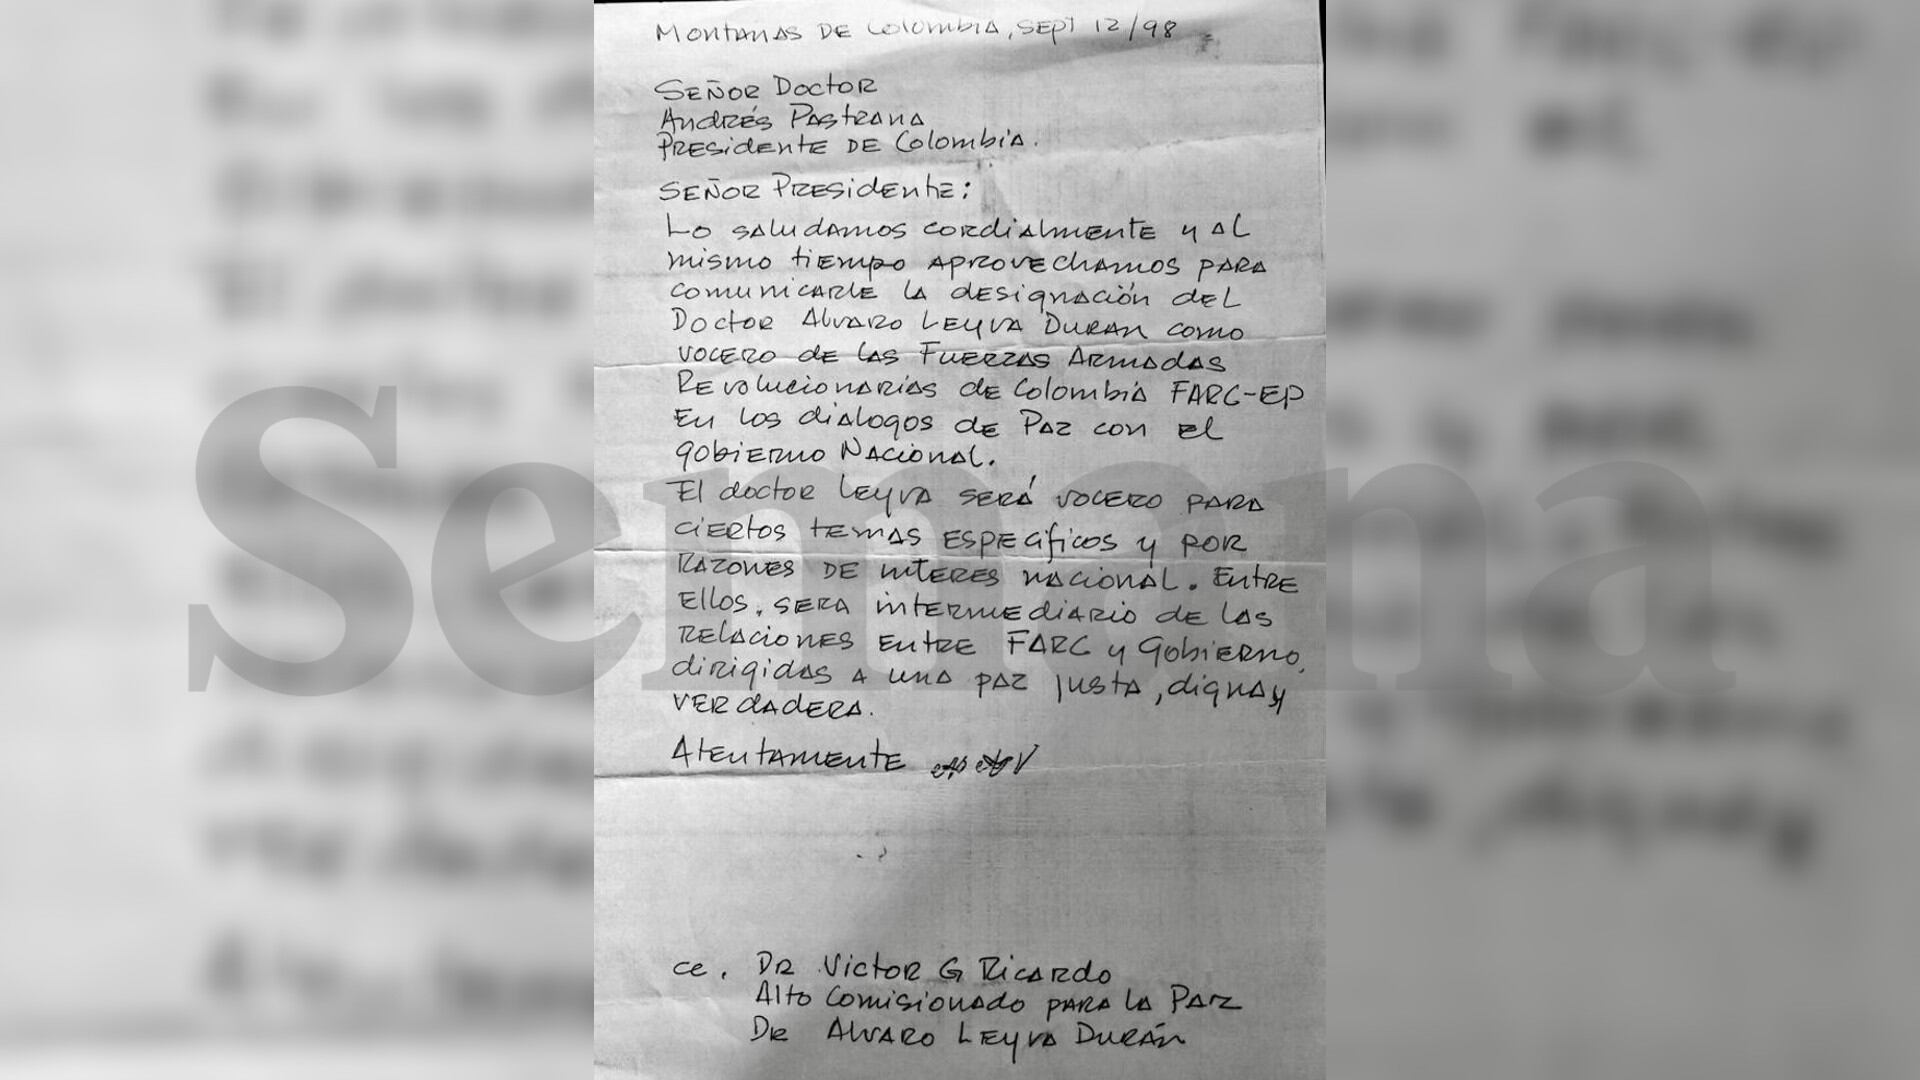 Montañas de Colombia, Sept 12/98
Señor Doctor
Andrés Pastrana
Presidente de Colombia.
Señor Presidente:
Lo saludamos cordialmente y al
mismo tiempo aprovechamos para
comunicarle la designación del
Doctor Alvaro Leyva Duran como
vocero de las Fuerzas Armadas
Revolucionarias de Colombia FARC-EP
En los dialogos de Paz con el
gobierno Nacional.
El doctor Leyva será vocero para
ciertos temas especificos y por
razones de interes nacional. Entre
Ellos, sera intermediario de las
relaciones entre FARC y Gobierno,
dirigidas a una paz justa, digna y
verdadera.
Atentamente
cc. Dr Victor G Ricardo
Alto Comisionado para la Paz
Dr Alvaro Leyva Durán
Semana